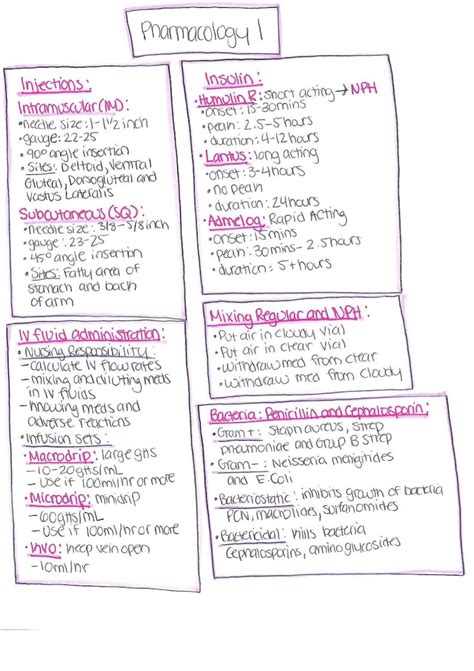 Pharmacology 1
Injections:
Intramuscular (IM):
•needle size: 1-1 1/2 inch
•gauge: 22-25
•90° angle insertion
•Sites: Deltoid, Ventral
Gluteal, Dorsogluteal and
Vastus Lateralis
Subcutaneous (SQ):
•needle size: 3/8-5/8 inch
•gauge: 23-25
•45° angle insertion
•Sites: Fatty area of
stomach and back
of arm
Insulin:
•Humulin R: Short acting→NPH
•onset: 15-30mins
•peak: 2.5-5 hours
•duration: 4-12 hours
•Lantus: long acting
•onset: 3-4 hours
•no peak
•duration: 24 hours
•Admelog: Rapid Acting
•onset: 15 mins
•peak: 30mins-2.5 hours
•duration: 5+ hours
Mixing Regular and NPH:
•Put air in cloudy vial
•Put air in clear vial
•withdraw med from clear
•withdraw med from cloudy
IV fluid administration:
•Nursing Responsibility:
-calculate IV flow rates
-mixing and diluting meds
in IV fluids
-knowing meds and
adverse reactions
•Infusion sets:
•Macrodrip: large gtts
-10-20gtts/mL
-use if 100ml/hr or more
•Microdrip: minidrip
-60gtts/mL
-use if 100ml/hr or more
•KVO: keep vein open
-10ml/hr
Bacteria: Penicillin and Cephalosporin:
•Gram+: Staph aureus, strep
pneumoniae and Group B strep
•Gram-: Neisseria mengitides
and E.Coli
•Bacteriostatic: inhibits growth of bacteria
PCN, macrolides, sulfanomides
•Bactericidal: kills bacteria
Cephalosporins, aminoglycosides